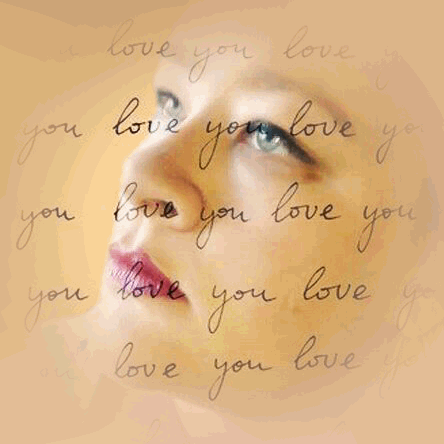 love you love
you love you love
you love you love you
you love you love
love you love